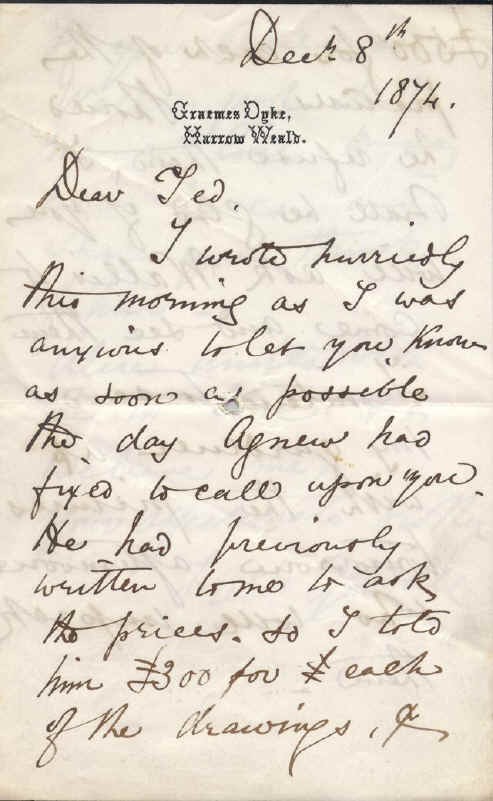 Decr 8th
1874.
Graemes Dyke,
Harrow Weald.
Dear Ted,
I wrote hurriedly
this morning as I was
anxious to let you know
as soon as possible
the day Agnew had
fixed to call upon you.
He had previously
written to me to ask
the prices. So I told
him £300 for each
of the drawings, &